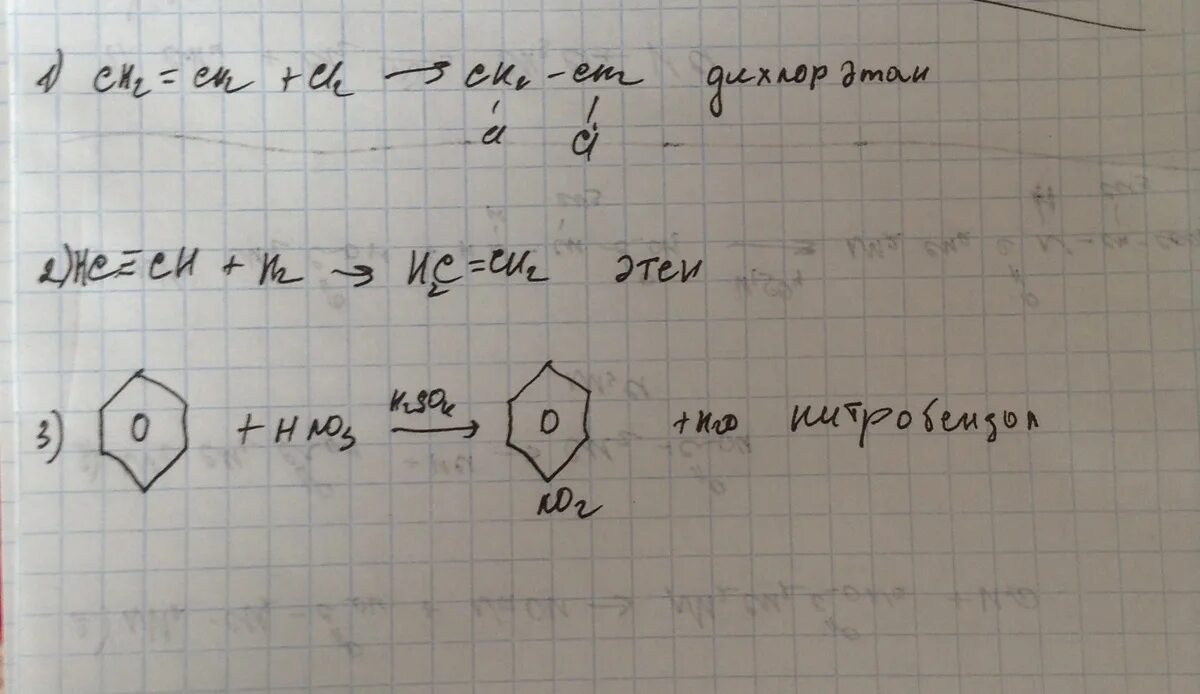 1) CH₂ = CH₂ + Cl₂ → CH₂ - CH₂ дихлор этан
Cl Cl
2) HC ≡ CH + H₂ → H₂C = CH₂ этен
3) O + HNO₃ H₂SO₄ → O + H₂O нитробензол
NO₂